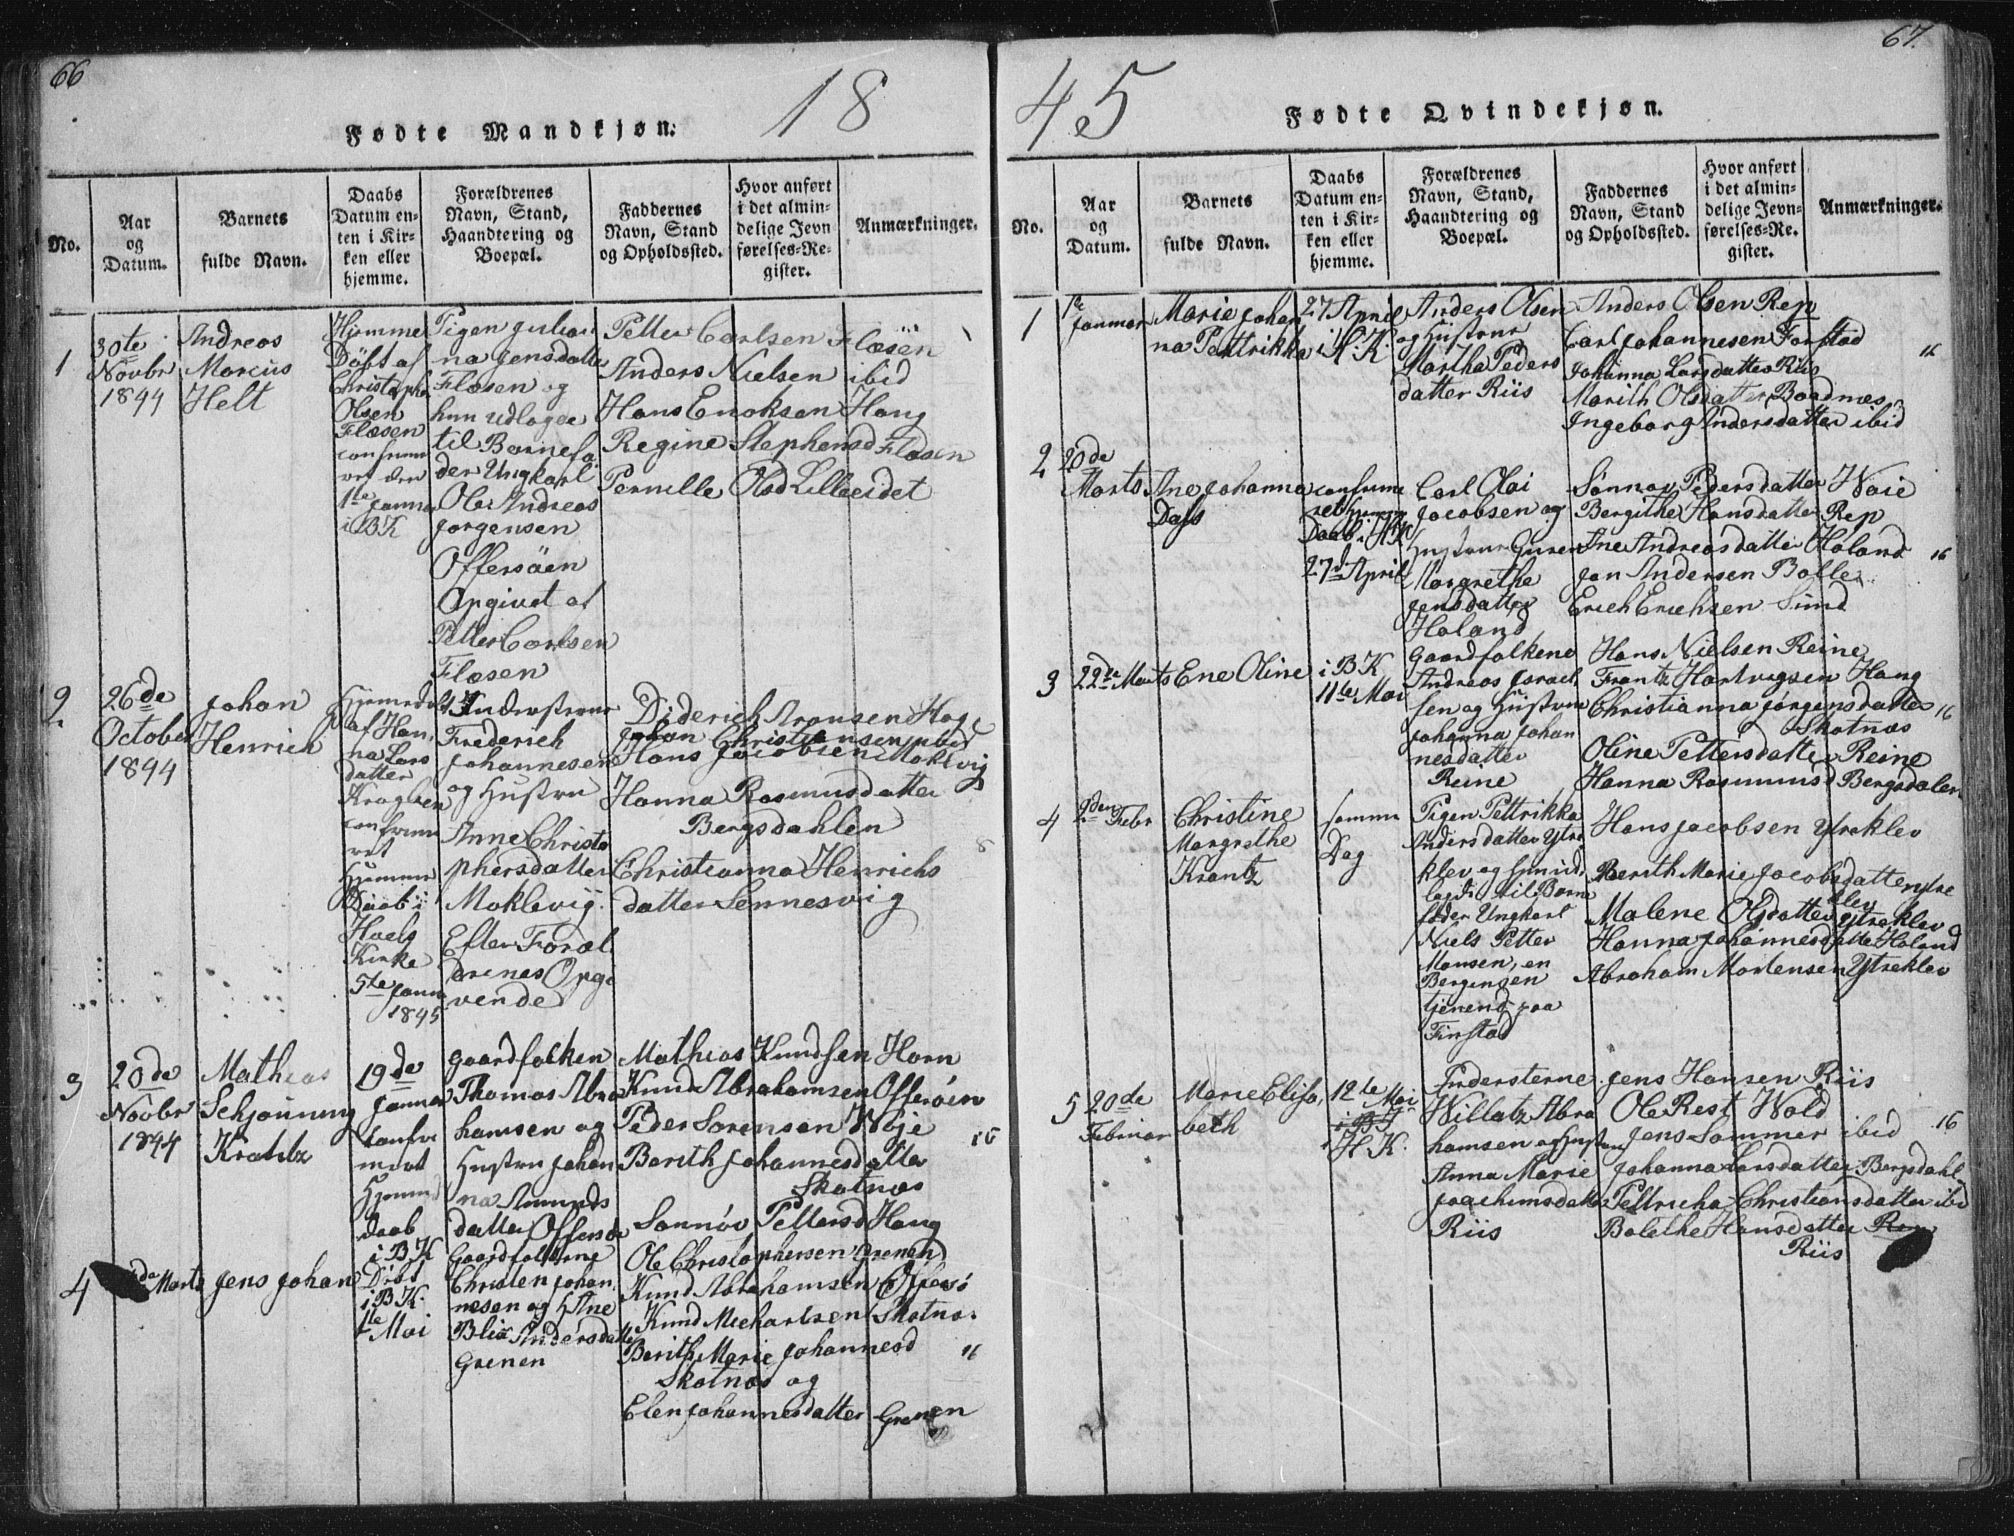 66
18
Fødte Mandkjøn.
No.
Aar
og
Datum.
Barnets
fulde Navn.
Daabs
Datum en-
ten i Kir-
ken eller
hjemme.
Forældrenes
Navn, Stand,
Haandtering og
Boepæl.
Faddernes
Navn, Stand
og Opholdssted.
Hvor anført
i det almin-
delige Jevn
førelses-Re-
gister.
Anmærkninger.
1
30te
Novbr
1844
Andreas
Marcus
Helt
Hjemme
Døbt af
Christoph
Olsen
Flæsen
1te Januar
i BK
Pigen Julian
na Jensdatter
Flæsen og
hun udlagde
til Barnefa
der Ungkarl
Ole Andreas
Jørgensen
Offersøen
Opgivet af
Petter Carlsen
Flæsen
Petter Carlsen Flæsen
Anders Nielsen ibid
Hans Enoksen Hang
Regine Stephensd Flæsen
Pernille Olsd Lilleeidet
2
26de
October
1844
Johan
Henrich
af Han
na Lars
datter
Kragleen
Hjemme
Daab i
Hoels
Kirke
5te Janu
1845
Indersterne
Frederich
Johannesen
og Hustru
Anne Christo
phersdatter
Moklevig
Efter Foræl
drenes Opgi
vende
Diderich Aronsen Hag
Johan Christiansen ibid
Hans Jacobsen Moklvig
Hanna Rasmusdatter
Bergsdahlen
Christianna Henrichs
datter Sennesvig
3
20de
Novbr
1844
Mathias
Schjønning
Krantz
19de
Januar
confir
meret
Hjemme
daab
i BK
Gaardfolken
Thomas Abra
hamsen og
Hustru Johan
na Amunds
datter Offersø
Mathias Knudsen Horn
Knud Abrahamsen Offersøen
Peder Sorensen Woje
Berith Johannesdatter
Skotnæs
Sønnøv Pettersd Hang
16
4
Marts
Jens Johan
Døbt
i BK
1te Mai
Gaardfolkene
Christen Johan
nesen og H Ane
Blix Andersdatter
Grenen
Ole Christophersen Grenen
Knud Abrahamsen Offersø
Knud Michaelsen Skotnæ
Berith Marie Johannesd
Skotnæs og
Elen Johannesdatter Grenen
16
67.
45
Fødte Qvindekjøn.
No.
Aar
og
Datum.
Barnets
fulde Navn.
Daabs
Datum en-
ten i Kir-
ken eller
hjemme.
Forældrenes
Navn, Stand,
Haandtering og
Boepæl.
Faddernes
Navn, Stand
og Opholdssted.
Hvor anført
i det almin-
delige Jevn-
førelses-Re-
gister.
Anmærkninger.
1
1te
Januar
Marie Johan
na Pettrikka
27 April
i H.K
Anders Olsen
og Hustrue
Martha Peders
datter Riis
Anders Olsen Rep
Carl Johannesen Forstad
Johanna Larsdatter Riis
Marith Olsdatter Baadnæs
Ingeborg Andersdatter ibid
16
2
20de
Marts
Ane Johanna
Dass
Daab i HK
27de April
Carl Olai
Jacobsen og
Margrethe
Jensdatter
Holand
Sønnov Pedersdatter Woie
Bergithe Hansdatter Rep
Ane Andreasdatter Holand
Jon Andersen Bolle
Erich Erichsen Sund
16
3
22de Marts
Ene Oline
i BK
11te Mai
Gaardfolkene
Andreas Israel
sen og Hustrue
Johanna Johan
nesdatter
Reine
Hans Nielsen Reine
Frantz Hartvigsen Hang
Christianna Jørgensdatter
Skotnæs
Oline Pettersdatter Reine
Hanna Rasmusd Bergsdalen
16
4
Febr
Christine
Margrethe
Krantz
samme
Dag
Pigen Pettrikka
Andersdatter Ytre
klev og hun ud
lagde til Barn
fader Ungkarl
Niels Petter
Monsen, en
Bergenser
tjenende paa
Finstad
Hans Jacobsen Ytreklev
Berith Marie Jacobsdatter Ytre
klev
Malene Olsdatter Ytreklev
Hanna Johannesdatter Holand
Abraham Mortensen Ytreklev
5
20de
Februar
Marie Elisa
beth
12te Mai
i H.K.
Indersterne
Willatz Abra
hamsen og Hustrue
Anna Marie
Joachimsdatter
Riis
Jens Hansen Riis
Ole Rest Wold
Jens Sommer ibid
Johanna Larsdatter Bergsdahl
Pettricha Christiansdatter ibid
Bolethe Hansdatter
Riis
16